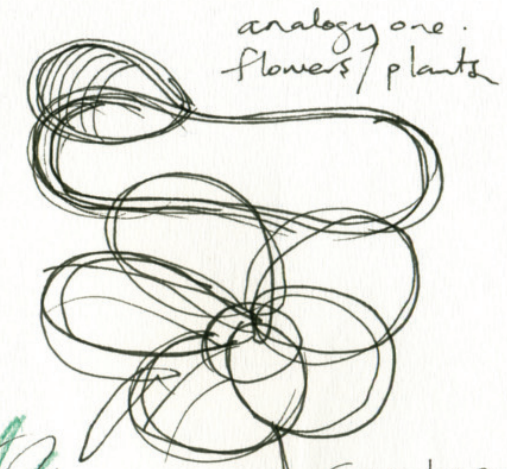 analogy one.
flowers/plants